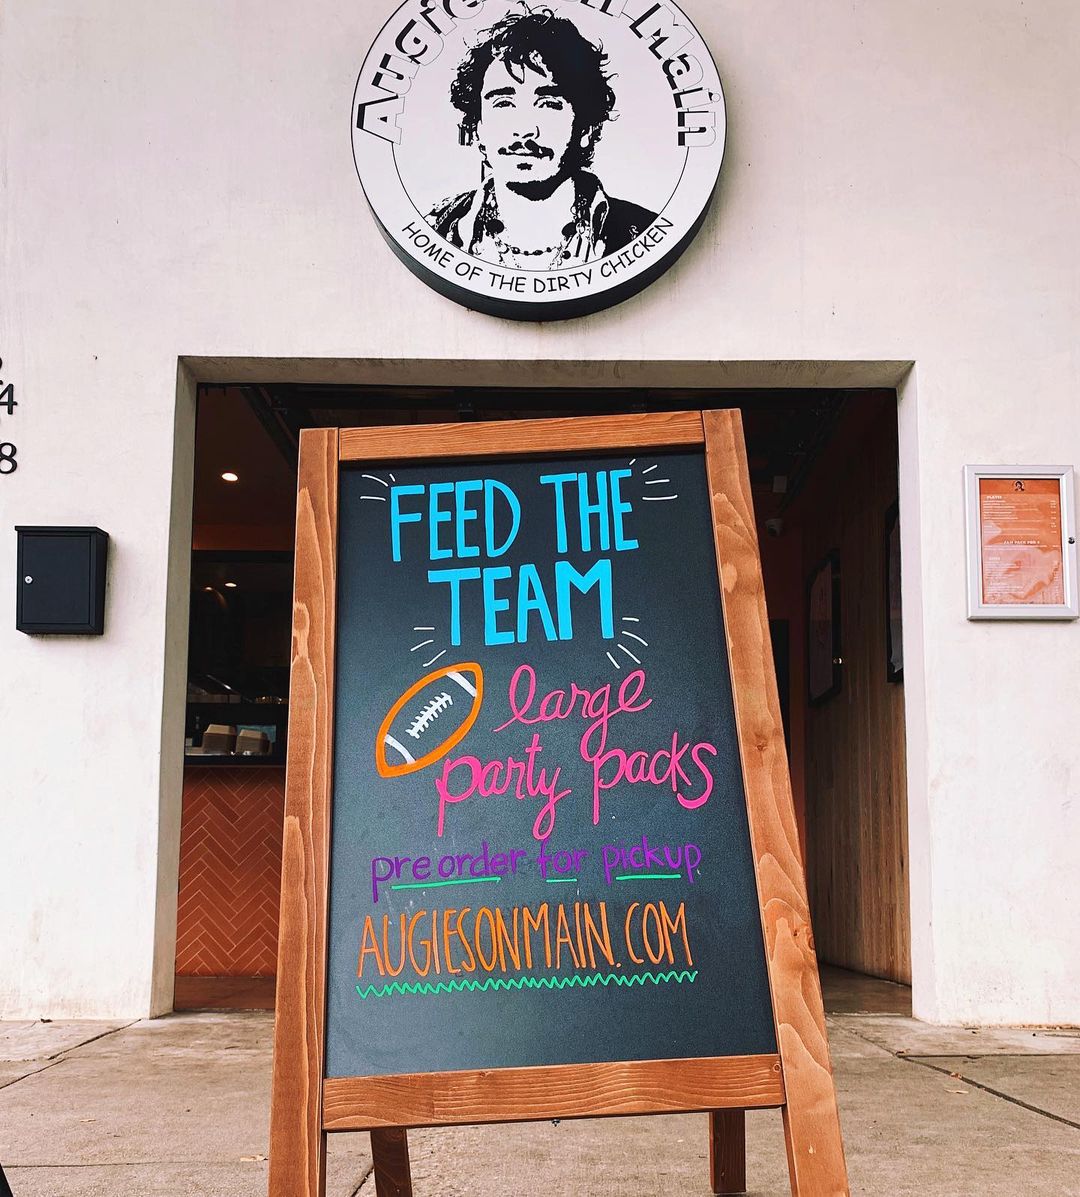 Augie's on Main
HOME OF THE DIRTY CHICKEN
4
8
FEED THE
TEAM
large
party packs
preorder for pickup
AUGIESONMAIN.COM